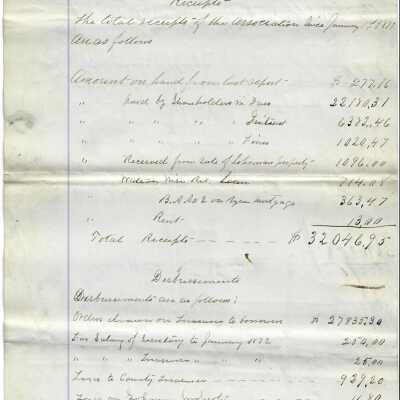 Receipts
The total receipts of the Association since January 1881
are as follows
Amount on hand from last report $ 277,16
" Paid by Shareholders in Dues 22180,31
" " " " " Interest 6382,46
" " " " " Fines 1020,47
" Received from sale of property 1096,00
" 714,08
" B. & L. on Ryan mortgage 363,47
" Rent 13,00
Total Receipts $ 32046,95
Disbursements
Disbursements are as follows:
Orders drawn on Treasurer to borrowers $ 27835,30
For Salary of Secretary to January 1882 250,00
" " " Treasurer " " 25,00
Taxes to County Treasurer 929,20
Taxes on 11,80